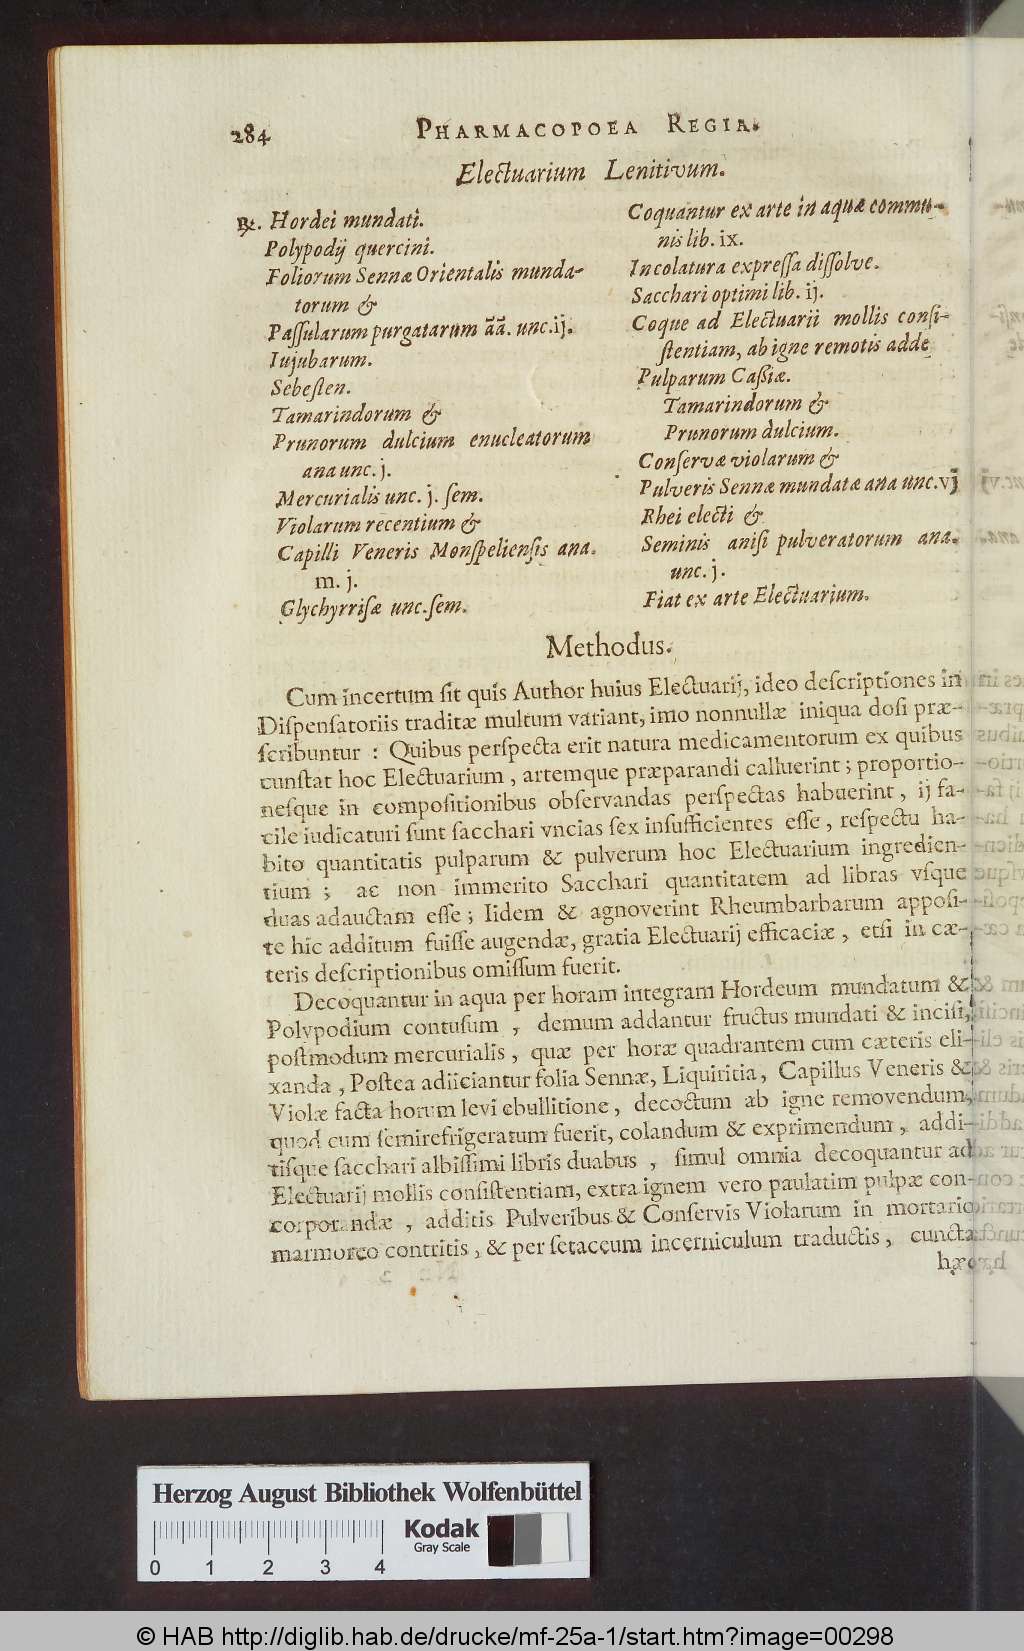 284 PHARMACOPOEA REGIA.
Electuarium Lenitivum.
℞. Hordei mundati.
Polypodij quercini.
Foliorum Sennæ Orientalis munda-
torum &
Paſſularum purgatarum ãã. unc. ij.
Iujubarum.
Sebeſten.
Tamarindorum &
Prunorum dulcium enucleatorum
ana unc. j.
Mercurialis unc. j. ſem.
Violarum recentium &
Capilli Veneris Monſpelienſis ana.
m. j.
Glychyrriſæ unc. ſem.
Coquantur ex arte in aquæ commu-
nis lib. ix.
In colatura expreſſa diſſolve.
Sacchari optimi lib. ij.
Coque ad Electuarii mollis conſi-
ſtentiam, ab igne remotis adde
Pulparum Caſſiæ.
Tamarindorum &
Prunorum dulcium.
Conſervæ violarum &
Pulveris Sennæ mundatæ ana unc. vj
Rhei electi &
Seminis aniſi pulveratorum ana.
unc. j.
Fiat ex arte Electuarium.
Methodus.
Cum incertum ſit quis Author huius Electuarij, ideo deſcriptiones in
Diſpenſatoriis traditæ multum variant, imo nonnullæ iniqua doſi præ-
ſcribuntur : Quibus perſpecta erit natura medicamentorum ex quibus
cunſtat hoc Electuarium, artemque præparandi calluerint ; proportio-
neſque in compoſitionibus obſervandas perſpectas habuerint, ij fa-
cile iudicaturi ſunt ſacchari vncias ſex inſufficientes eſſe, reſpectu ha-
bito quantitatis pulparum & pulverum hoc Electuarium ingredien-
tium ; ac non immerito Sacchari quantitatem ad libras vſque
duas adauctam eſſe ; Iidem & agnoverint Rheumbarbarum appoſi-
te hic additum fuiſſe augendæ, gratia Electuarij efficaciæ, etſi in cæ-
teris deſcriptionibus omiſſum fuerit.
Decoquantur in aqua per horam integram Hordeum mundatum &
Polypodium contuſum, demum addantur fructus mundati & inciſi,
poſtmodum mercurialis, quæ per horæ quadrantem cum cæteris eli-
xanda, Poſtea adiiciantur folia Sennæ, Liquiritia, Capillus Veneris &
Violæ facta horum levi ebullitione, decoctum ab igne removendum,
quod cum ſemirefrigeratum fuerit, colandum & exprimendum, addi-
tiſque ſacchari albiſſimi libris duabus, ſimul omnia decoquantur ad
Electuarij mollis conſiſtentiam, extra ignem vero paulatim pulpæ con-
corporandæ, additis Pulveribus & Conſervis Violarum in mortario
marmoreo contritis, & per ſetaceum incerniculum traductis, cuncta
hæc
Herzog August Bibliothek Wolfenbüttel
0 1 2 3 4
Kodak
Gray Scale
© HAB http://diglib.hab.de/drucke/mf-25a-1/start.htm?image=00298